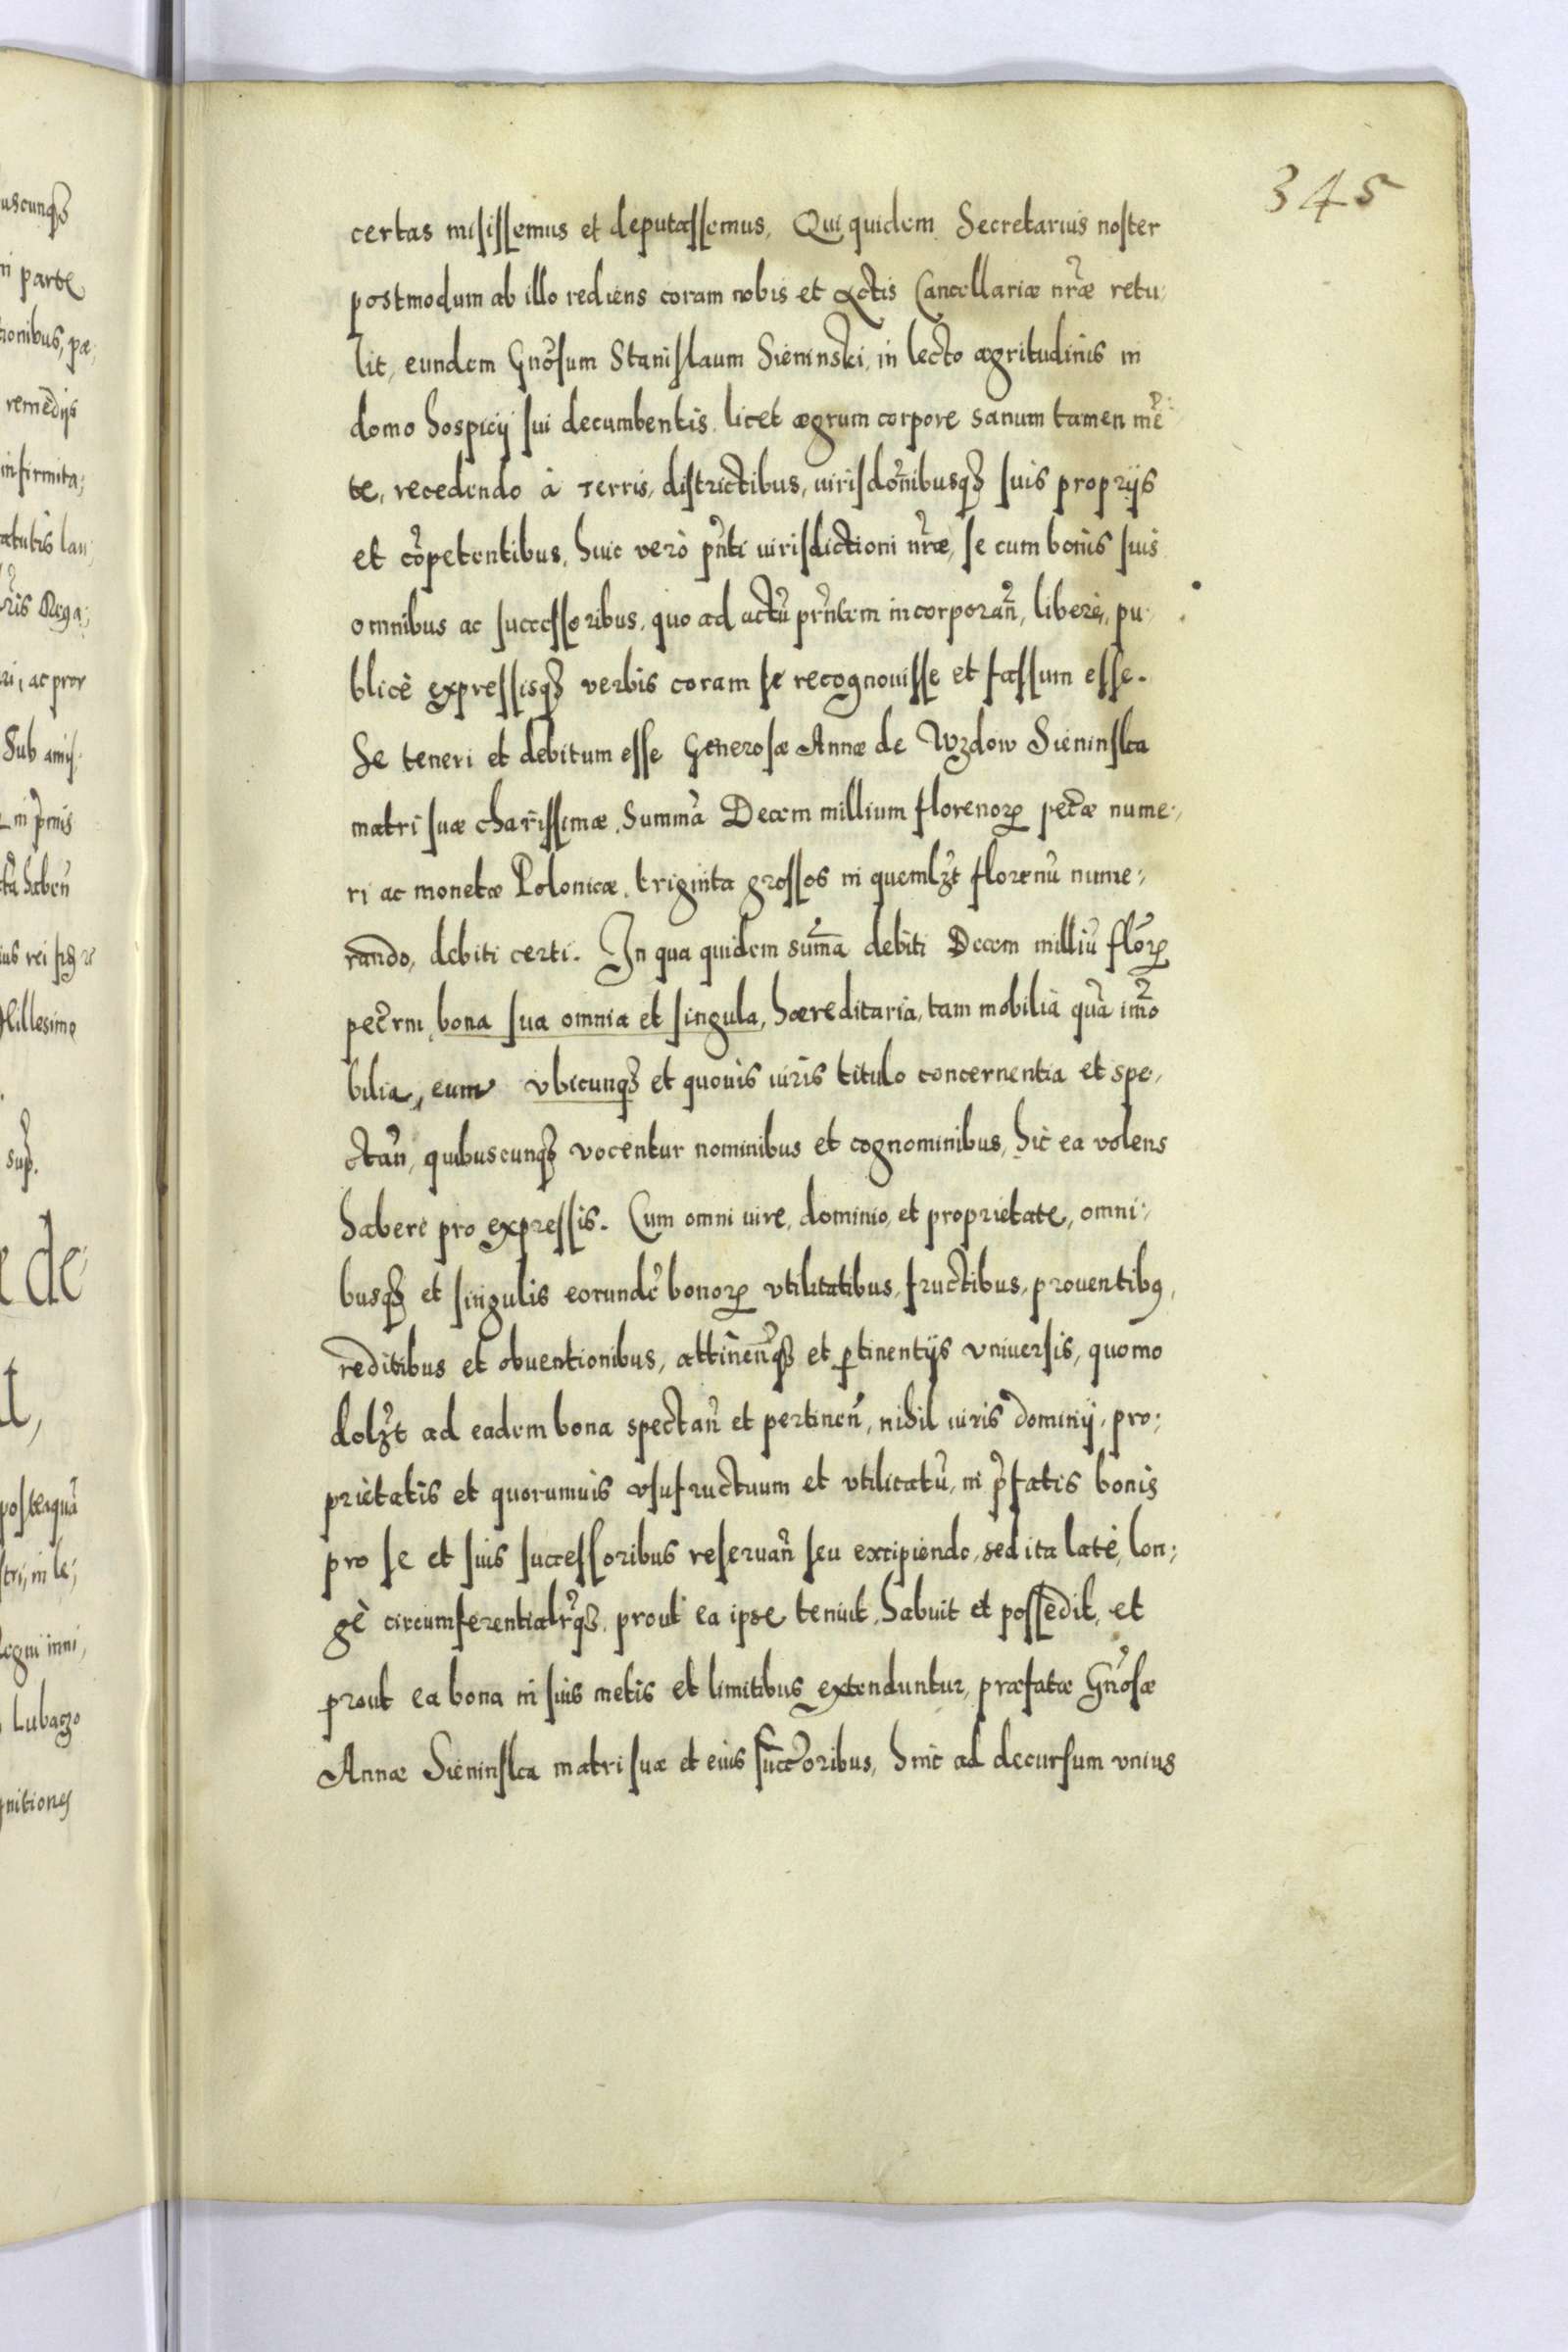 345
certas misissemus et deputassemus, Qui quidem Secretarius noster
postmodum ab illo rediens coram nobis et Actis Cancellariæ nr̃æ retu,
lit, eundem Gnõsum Stanislaum Sieninski, in lecto ægritudinis in
domo hospicij sui decumbentis, licet ægrum corpore sanum tamen mẽ,
te, recedendo à Terris, districtibus, iurisdõnibusq3 suis proprijs
et cõpetentibus, huic verò pñti iurisdictioni nr̃æ, se cum bonis suis
omnibus ac successoribus, quo ad actũ prñtem incorporañ, liberè, pu,
blicè expressisq3 verbis coram se recognouisse et fassum esse.
Se teneri et debitum esse Generosæ Annæ de Wzdow Sieninska
matri suæ charissimæ, Summã Decem millium florenorꝝ pecæ nume,
ri ac monetæ Polonicæ, triginta grossos in quemlzt florenũ nume,
rando, debiti certi. In qua quidem sum̃a debiti Decem milliũ flõrꝝ
pec̃rm, bona sua omnia et singula, hæreditaria, tam mobilia quã im̃o
bilia, eum vbicunq3 et quouis iuris titulo concernentia et spe,
ctañ, quibuscunq3 vocentur nominibus et cognominibus, hic ea volens
habere pro expressis. Cum omni iure, dominio, et proprietate, omni,
busq3 et singulis eorundẽ bonorꝝ vtilitatibus, fructibus, prouentibꝰ,
reditibus et obuentionibus, attineñq3 et ꝑtinentijs vniuersis, quomo
dolzt ad eadem bona spectañ et pertineñ, nihil iuris dominij, pro,
prietatis et quorumuis vsufructuum et vtilitatũ, in pr̃fatis bonis
pro se et suis successoribus reseruañ seu excipiendo, sed ita latè, lon,
gè circumferentialr̃q3, prout ea ipse tenuit, habuit et possedit, et
prout ea bona in suis metis et limitibus extenduntur, præfatæ Gnõsæ
Annæ Sieninska matri suæ et eius succ̃oribus, hinc ad decursum vnius